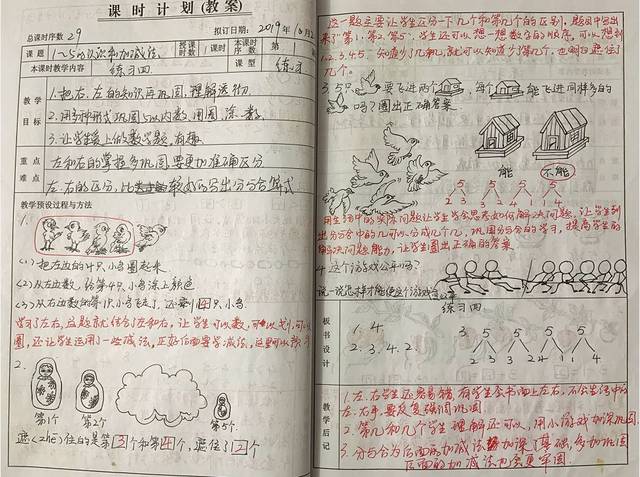 课时计划(教案)
总课时序数 29 拟订日期：2019年10月2
课题 1~5的认识和加减法 授课时数 1课时 本课时序数 第 1
本课时教学内容 练习四 课型 练习
教学目标
1.把右、左的知识再巩固,理解透彻.
2.用多种形式巩固5以内数,用圈、涂、数.
3.让学生爱上的数学题,有趣.
重点难点
左和右的掌握多巩固,要更加准确区分
左、右的区分,比较好的写出分与合算式
教学预设过程与方法
1.
(1)把左边的4只小鸟圈起来
(2)从左边数,给第4只小鸟涂上颜色
(3)从右边数的第1只小鸟飞走了,还剩4只小鸟.
学习了左右,这题就结合了左和右,让学生可以数,可以划,可以
圈,还让学生运用了一些减法,正好后面要学减法,这里可以预习
2.
第1个 第2个 第5个
遮住的是第3个和第4个,遮住了2个
这一题主要让学生区分一下几个和第几个的区别,题目中给出
来了第1、第2、第5,学生还可以想一想数字的顺序,可以想到
1.2.3.4.5,知道少了几和几,就可以知道少了第几个,也明白遮住了
几个。
3.5只 要飞进两个 ,每个 能飞进同样多的
吗?圈出正确答案
能 不能
5 5 5 5
1 4 2 3 3 2 4 1
用生活中的实际问题,让学生学会思考如何解决问题,让学生列
出分与合中的几可以分成几和几,巩固分与合的学习,提高学生的
解决问题能力,让学生圈出正确的答案
4.这个游戏公平吗?
说一说怎样才能使这个游戏公平
板书设计
练习四
1. 4.
2. 3. 4. 2.
3 5 5 5 5
1 2 3 2 2 4 1 1 4
教学后记
1.左、右学生还容易错,有学生会书面上左右,不会生活中的
左、右手,要反复强调巩固
2.第几和几个学生理解还可以,用小游戏加深巩固.
3.分与合为后面的加减法加深了基础,多加巩固
后面的加减法也会更牢固.